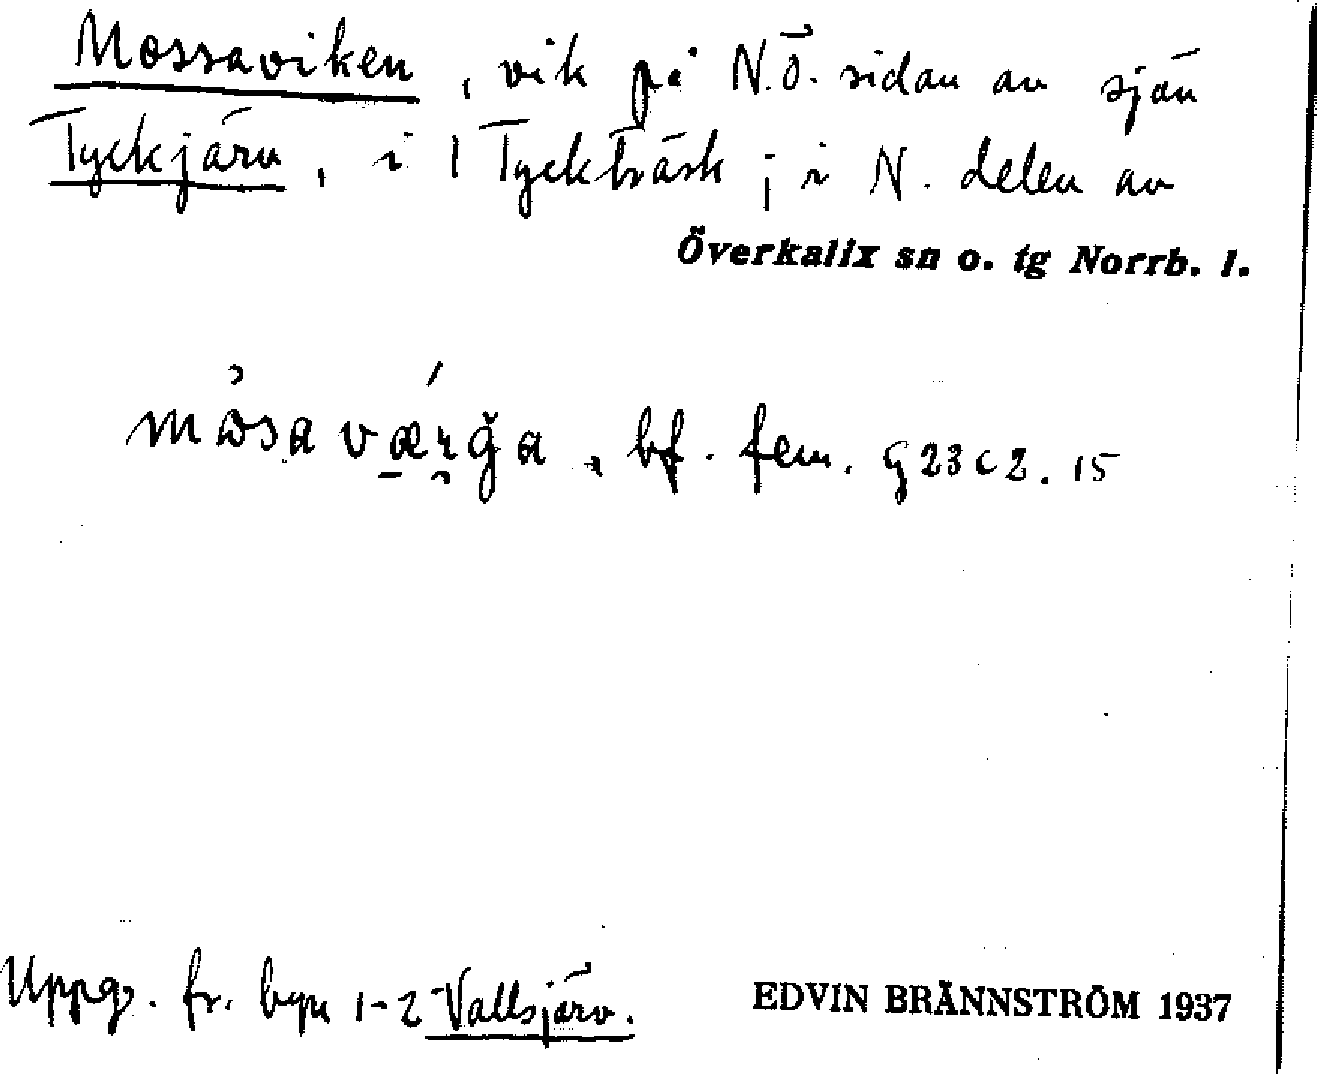 Mossaviken, vik på N.Ö. sidan av sjön
Tyckjärv, i 1 Tyckträsk; i N. delen av
Överkalix sn o. tg Norrb. l.
bf. fem. G23c2.15
Uppg. fr. byn 1-2 Vallsjärv.
EDVIN BRÄNNSTRÖM 1937